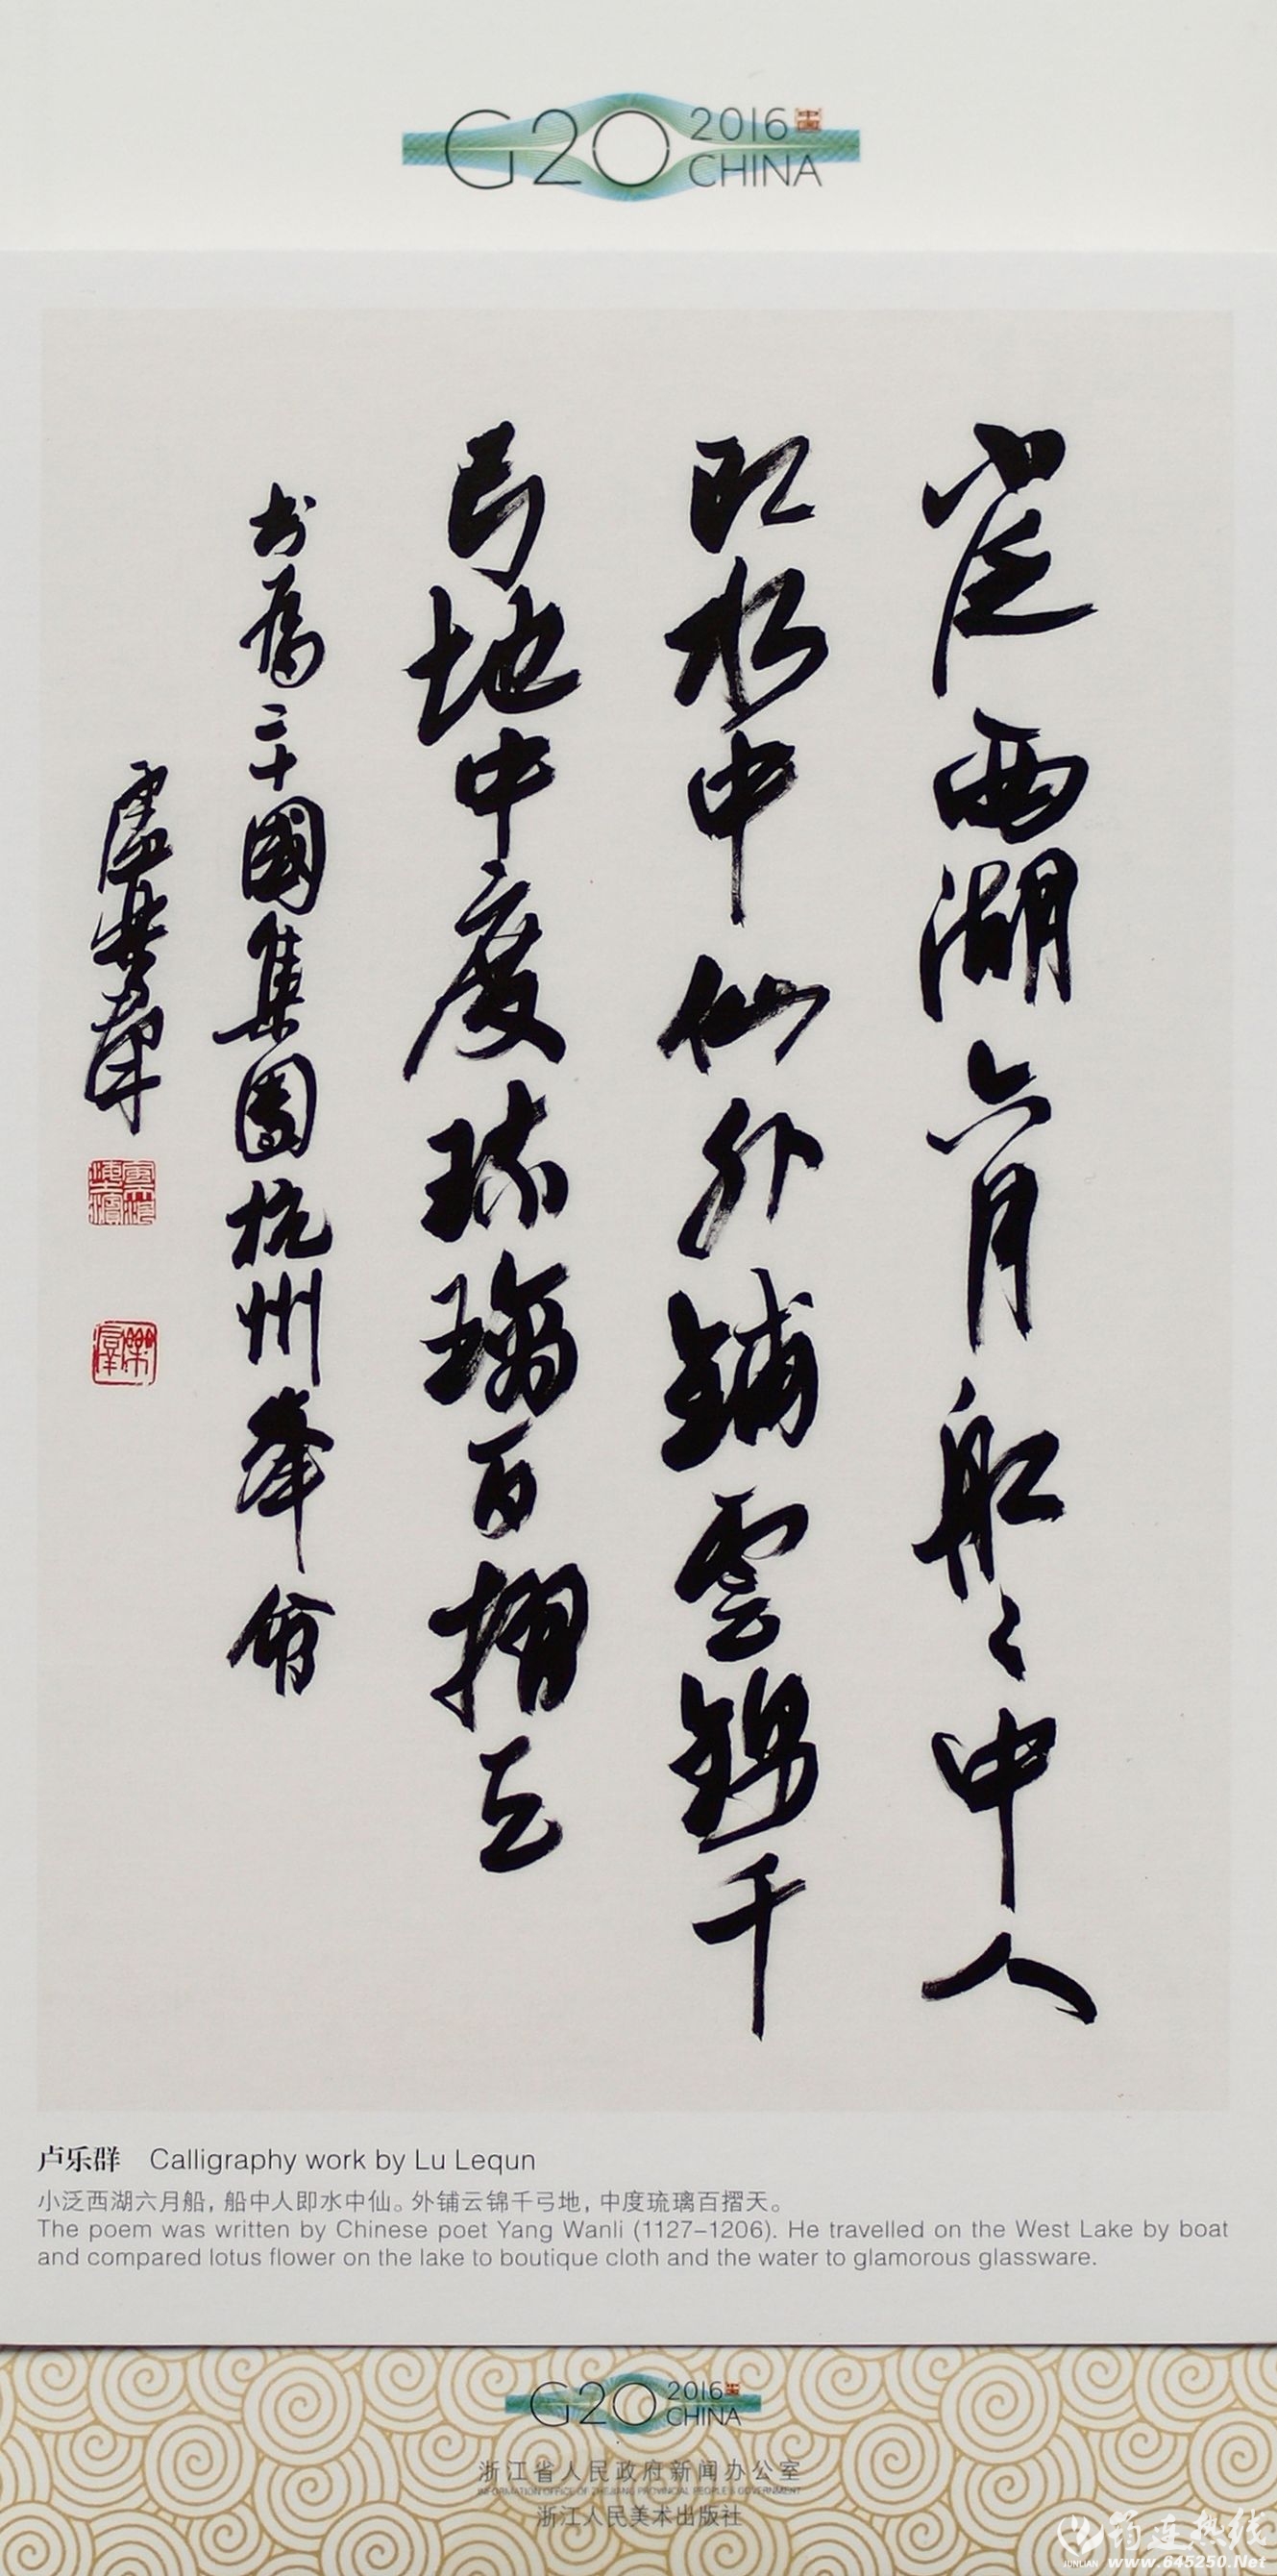 G20 2016 CHINA
小泛西湖六月船々中人
即水中仙外鋪雲錦千
弓地中度琉璃百摺天
书為二十國集團杭州峯會
盧樂群
卢乐群 Calligraphy work by Lu Lequn
小泛西湖六月船，船中人即水中仙。外铺云锦千弓地，中度琉璃百摺天。
The poem was written by Chinese poet Yang Wanli (1127–1206). He travelled on the West Lake by boat
and compared lotus flower on the lake to boutique cloth and the water to glamorous glassware.
G20 2016 CHINA
浙江省人民政府新闻办公室
INFORMATION OFFICE OF ZHEJIANG PROVINCIAL PEOPLE'S GOVERNMENT
浙江人民美术出版社
筠连热线
JUNLIAN www.645250.Net